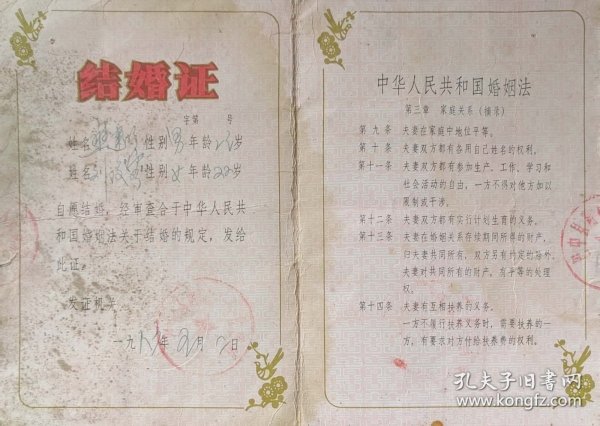 结婚证
字第 号
姓名 性别男年龄 岁
姓名 性别女年龄22岁
自愿结婚，经审查合于中华人民共
和国婚姻法关于结婚的规定，发给
此证。
发证机关
一九八 年 月 日
中华人民共和国婚姻法
第三章 家庭关系（摘录）
第九条 夫妻在家庭中地位平等。
第十条 夫妻双方都有各用自己姓名的权利。
第十一条 夫妻双方都有参加生产、工作、学习和
社会活动的自由，一方不得对他方加以
限制或干涉。
第十二条 夫妻双方都有实行计划生育的义务。
第十三条 夫妻在婚姻关系存续期间所得的财产，
归夫妻共同所有，双方另有约定的除外。
夫妻对共同所有的财产，有平等的处理
权。
第十四条 夫妻有互相扶养的义务。
一方不履行扶养义务时，需要扶养的一
方，有要求对方付给扶养费的权利。
孔夫子旧书网
www.kongfz.com